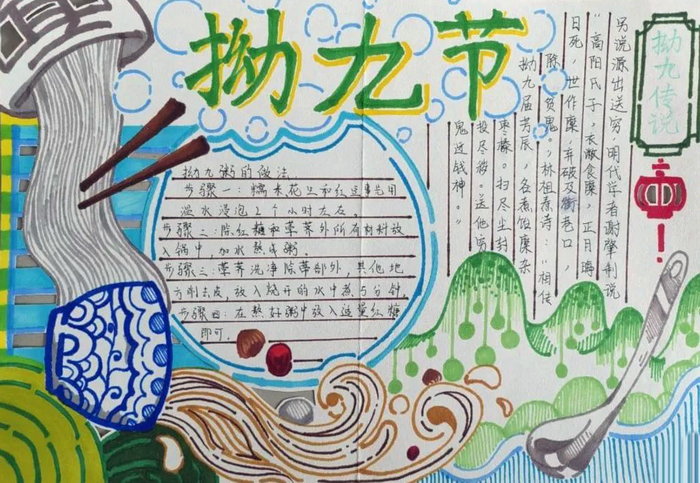 拗九节
拗九传说
另说源出送穷,明代学者谢肇制说
“高阳氏子,衣敝食糜,正月晦
日死,世作糜,弃破及街巷口,
除贫鬼。”林祖焘诗:“相传
拗九届芳辰,各煮饴糜杂
枣榛。扫尽尘封
投尽秽。送他穷
鬼迓钱神。”
拗九粥的做法
步骤一:糯米花生和红豆事先用
温水浸泡2个小时左右。
步骤二:除红糖和荸荠外所有材料放
锅中,加水熬成粥。
步骤三:荸荠洗净除蒂部外,其他地
方削去皮,放入烧开的水中煮5分钟
步骤四:在熬好粥中放入适量红糖
即可.